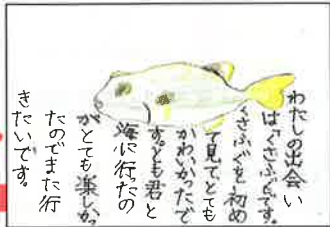 わたしの出会い
は「くさふぐ」です。
くさふぐを初め
て見て、とても
かわいかったで
す。とも君と
海に行ったの
がとても楽しかっ
たのでまた行
きたいです。